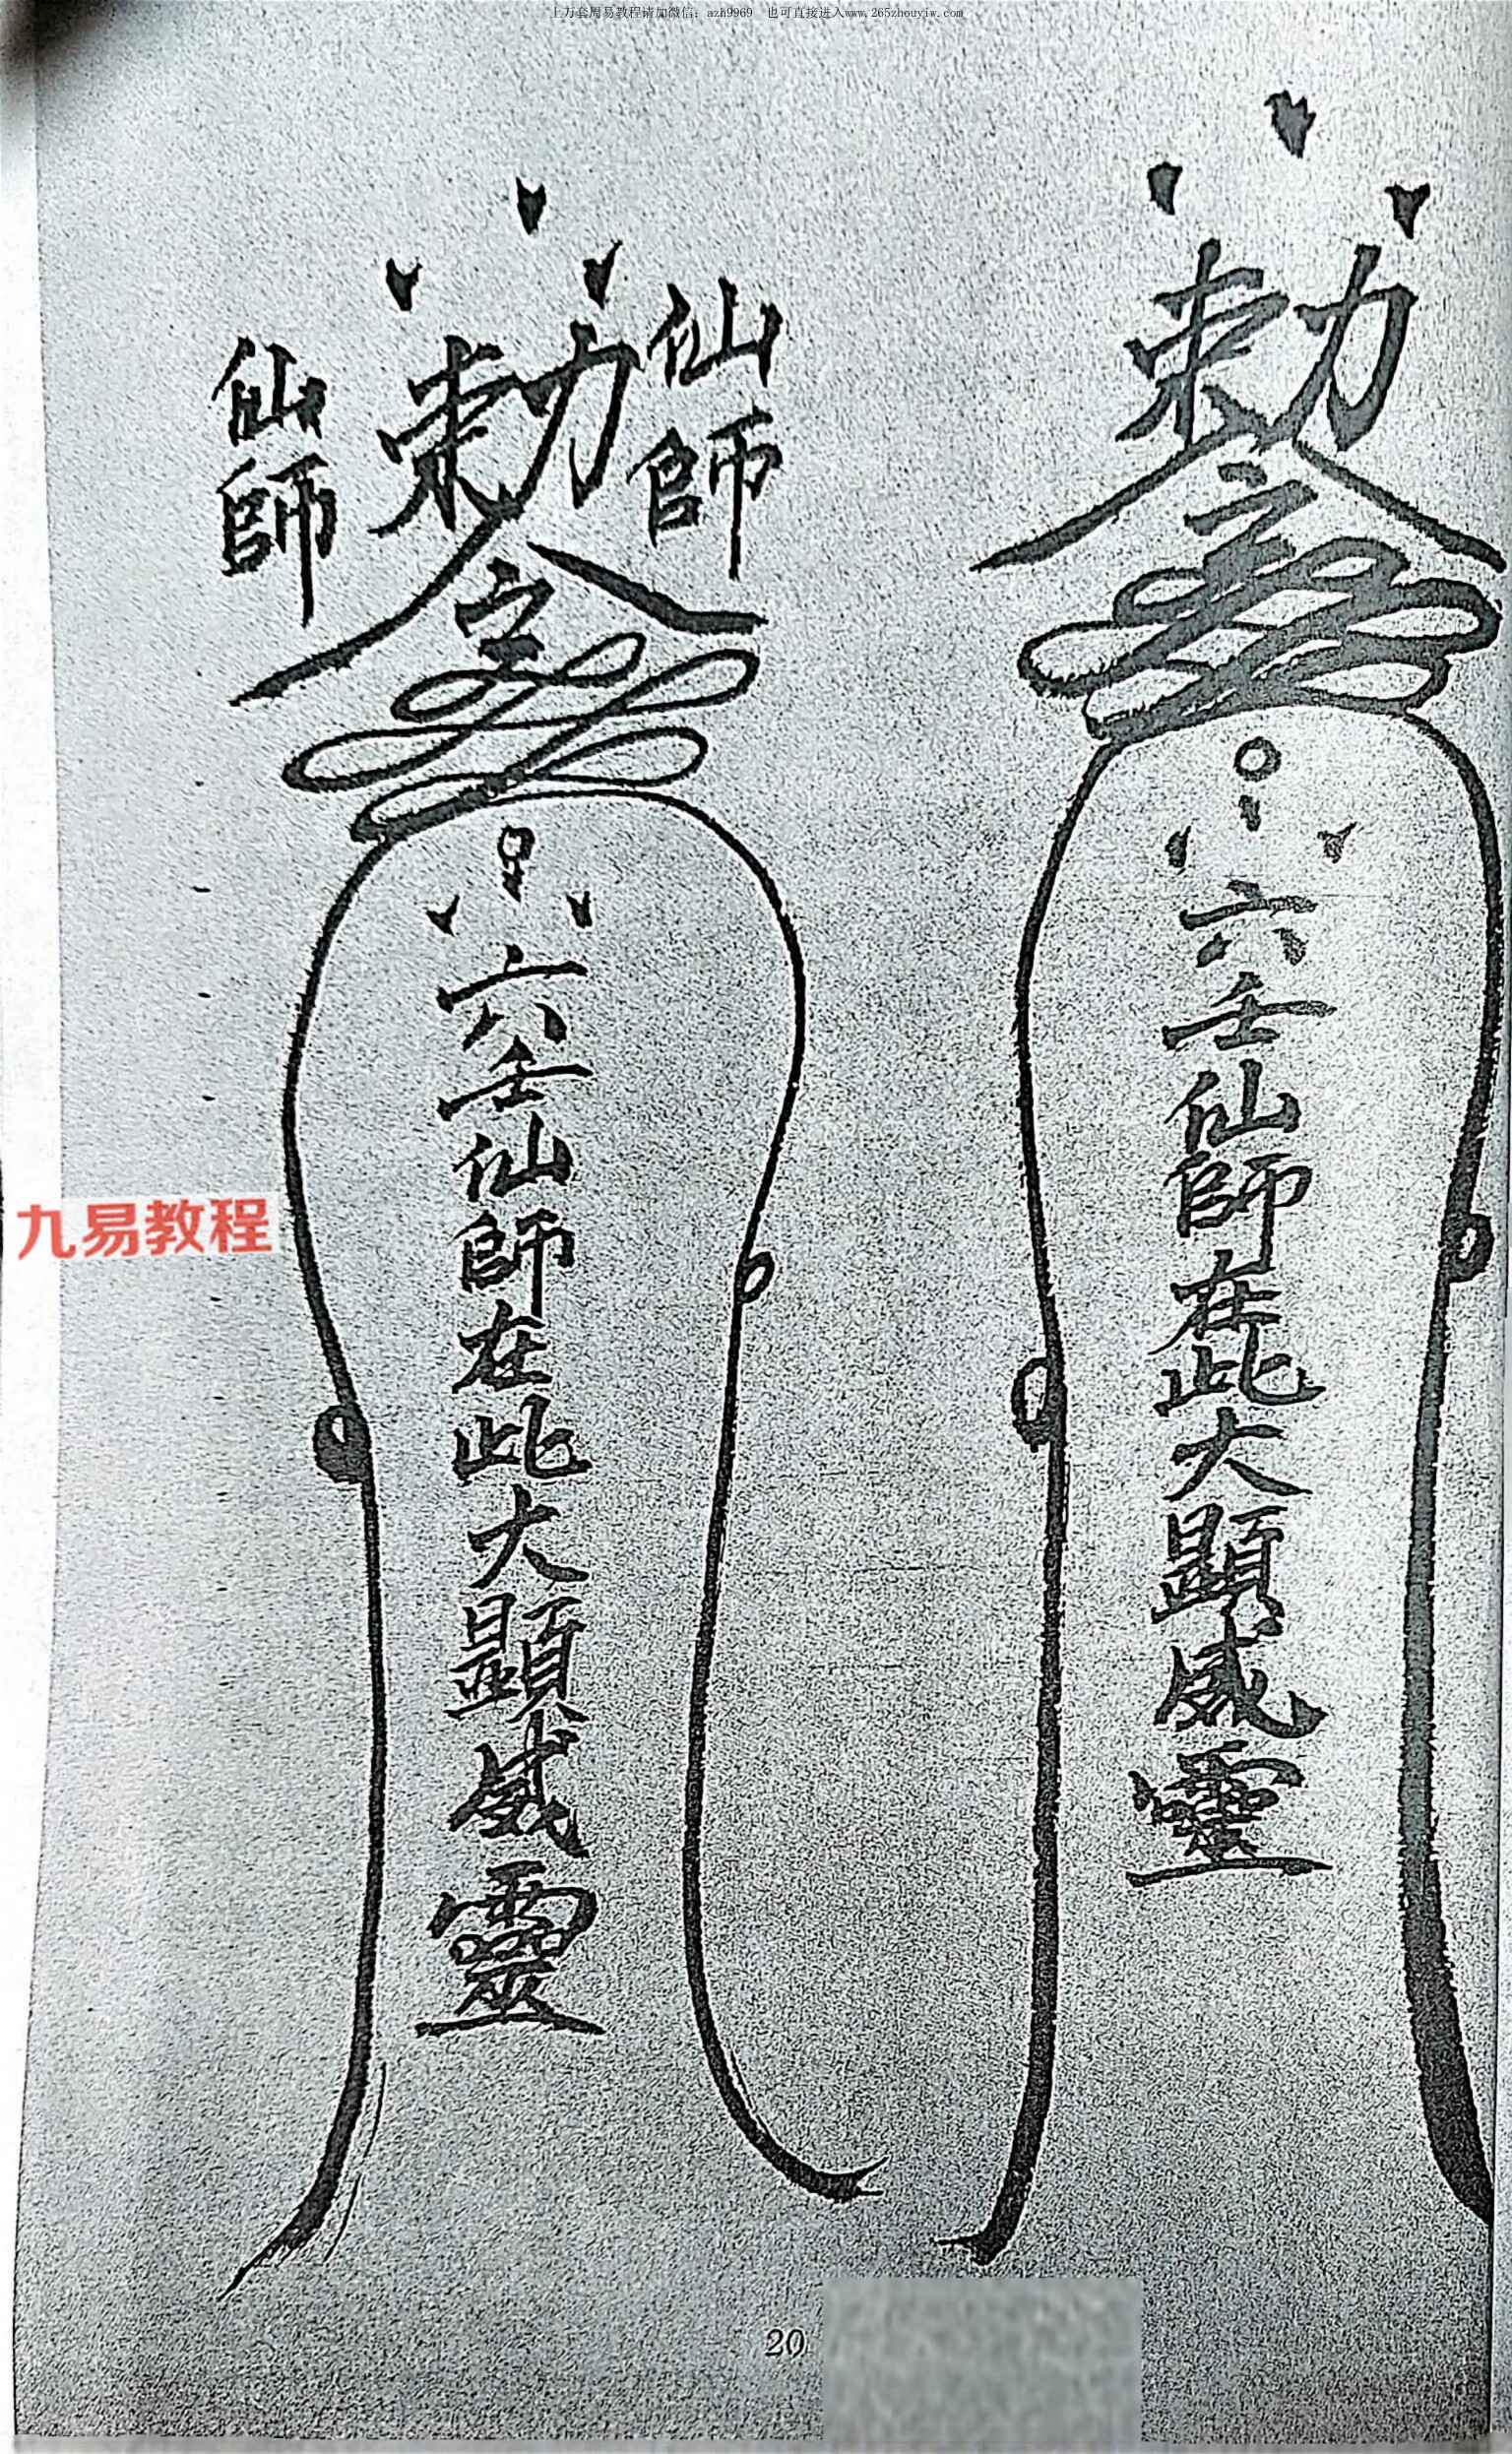 上万套周易教程请加微信：azh9969 也可直接进入www.265zhouyiw.com
勅
六壬仙師在此大顯威靈
仙師
勅
仙師
六壬仙師在此大顯威靈
九易教程
20